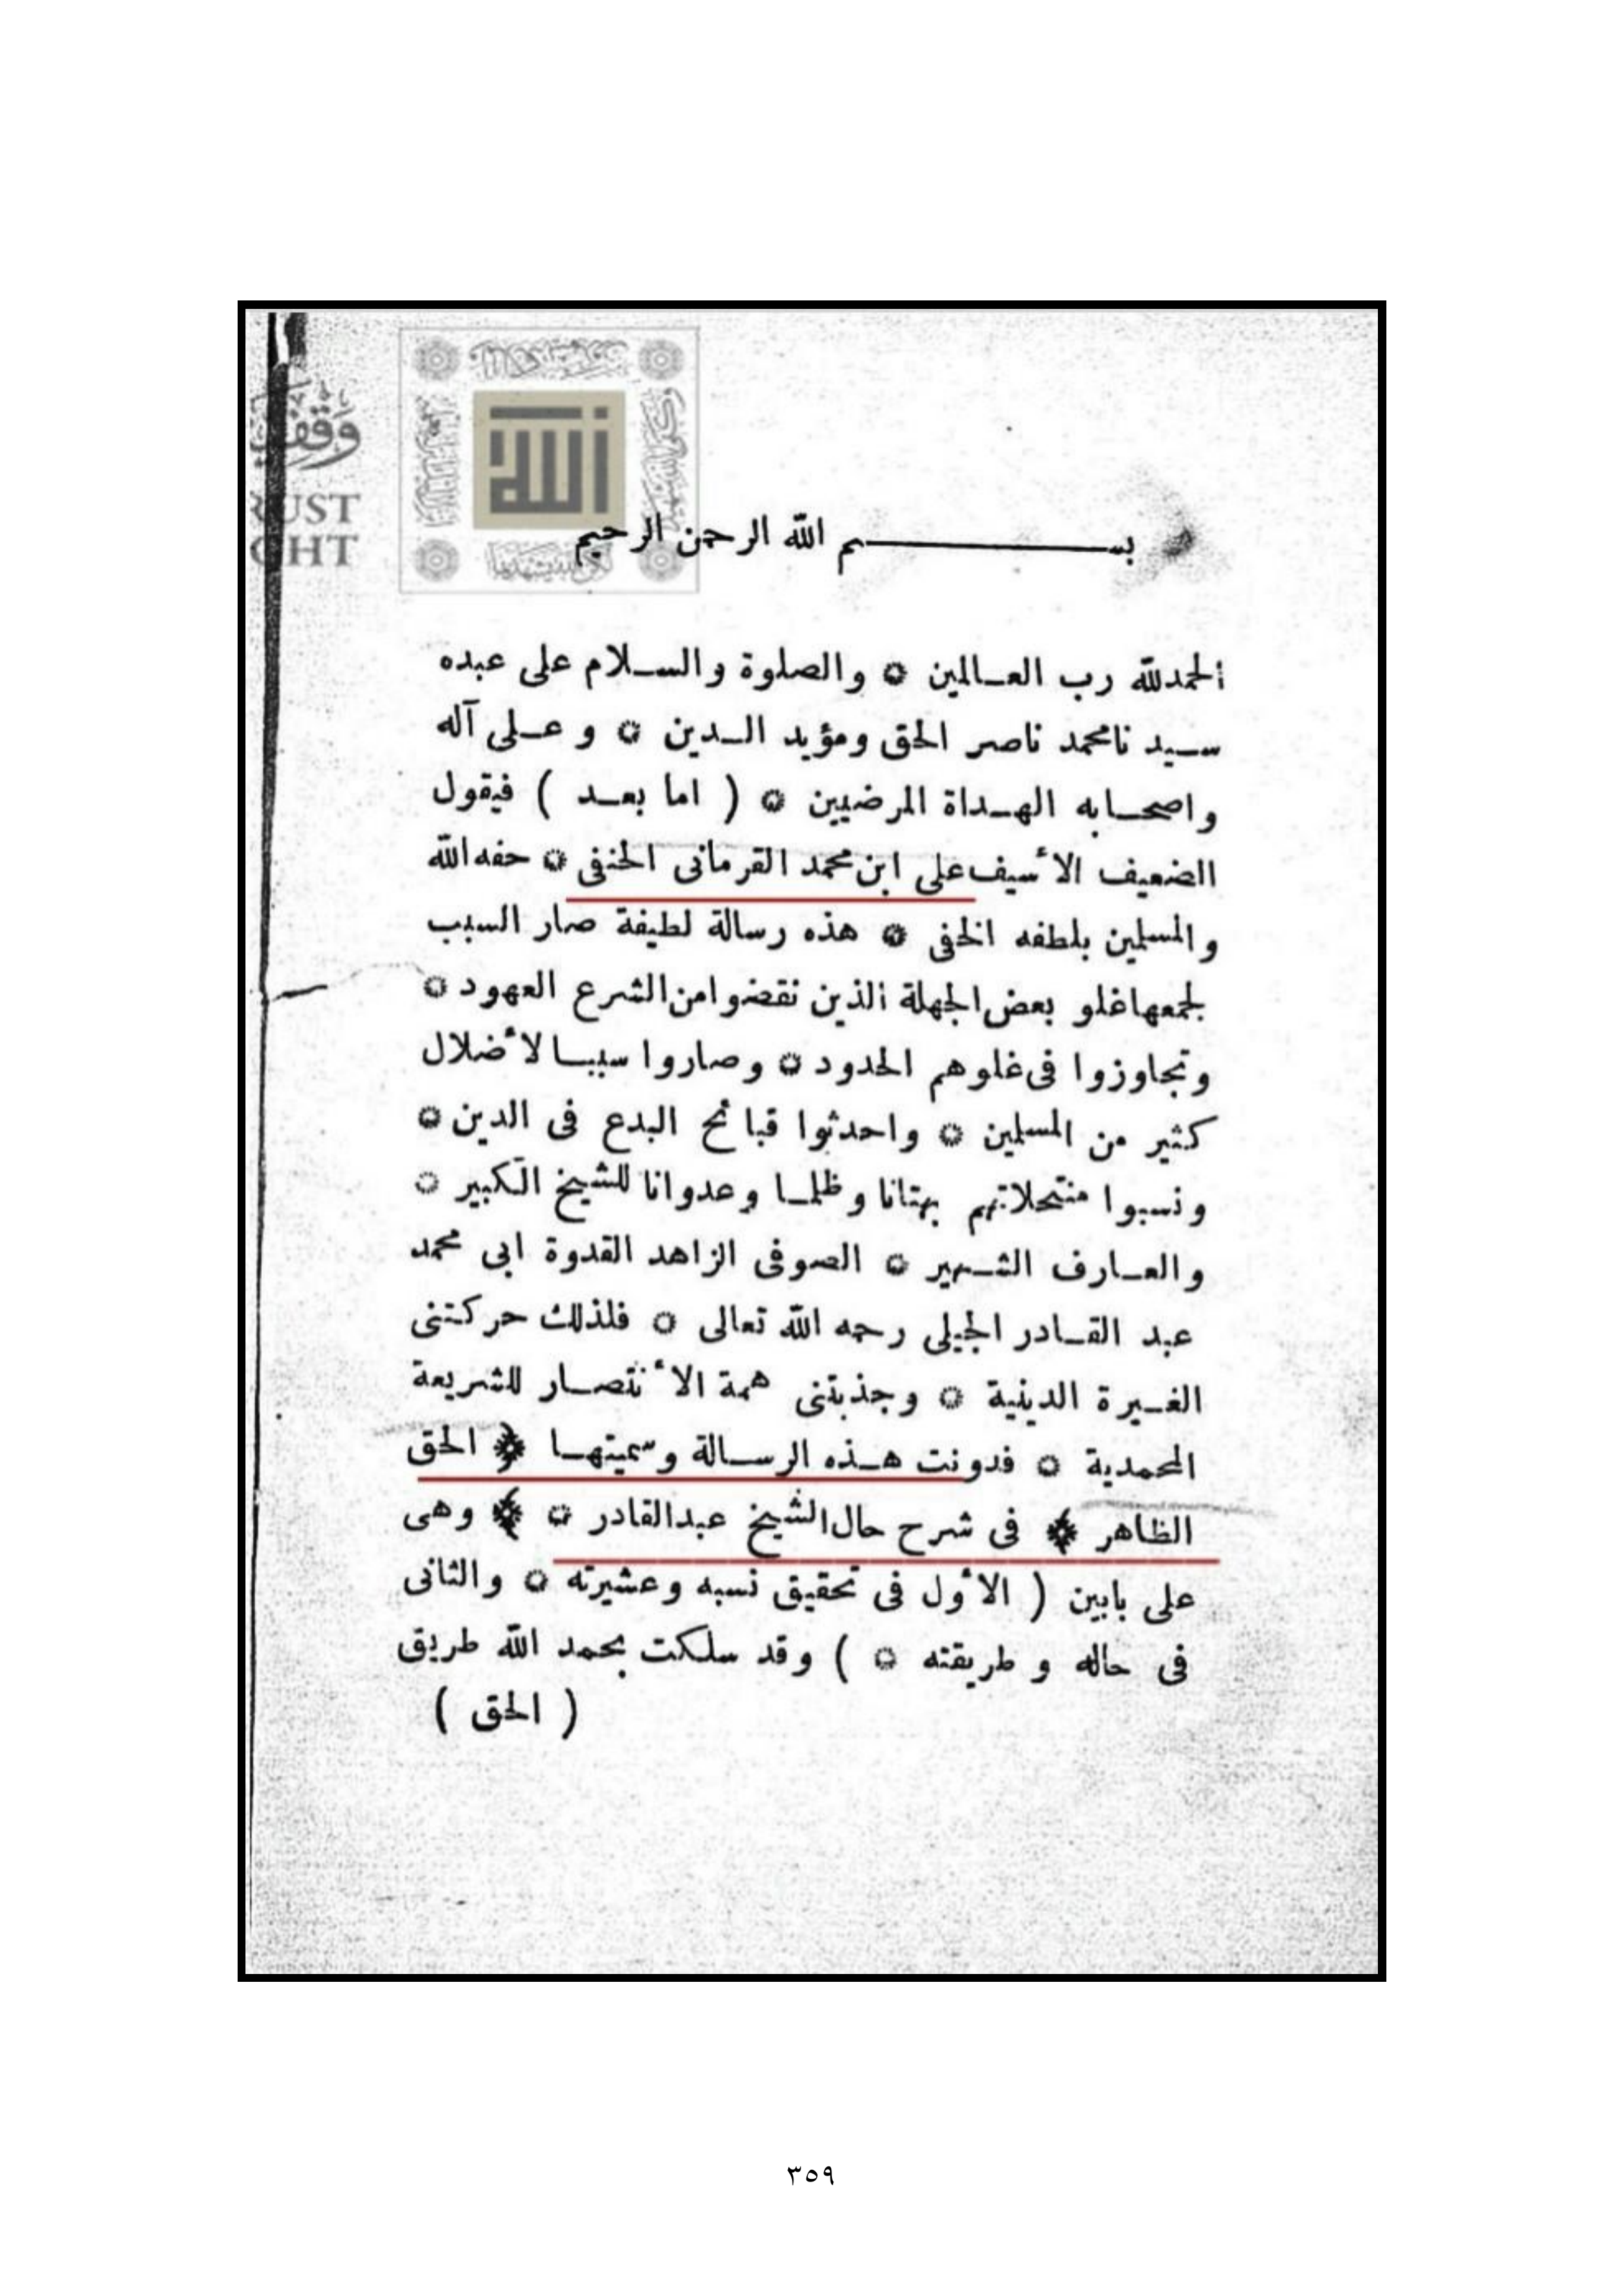 وقف
RUST
GHT
الله
بسم الله الرحمن الرحيم
الحمدلله رب العالمين ۞ والصلوة والسلام على عبده
سيد نامحمد ناصر الحق ومؤيد الدين ۞ و على آله
واصحابه الهداة المرضيين ۞ ( اما بعد ) فيقول
الضعيف الأسيف على ابن محمد القرمانى الحنفى ۞ حفه الله
والمسلمين بلطفه الخفى ۞ هذه رسالة لطيفة صار السبب
لجمعها غلو بعض الجهلة الذين نقضوا من الشرع العهود ۞
وتجاوزوا فى غلوهم الحدود ۞ وصاروا سببا لأضلال
كثير من المسلمين ۞ واحدثوا قبائح البدع فى الدين ۞
ونسبوا منتحلاتهم بهتانا وظلما وعدوانا للشيخ الكبير ۞
والعارف الشهير ۞ الصوفى الزاهد القدوة ابى محمد
عبد القادر الجيلى رحمه الله تعالى ۞ فلذلك حركتنى
الغيرة الدينية ۞ وجذبتنى همة الأنتصار للشريعة
المحمدية ۞ فدونت هذه الرسالة وسميتها ﴿ الحق
الظاهر ﴾ فى شرح حال الشيخ عبدالقادر ۞ ﴾ وهى
على بابين ( الأول فى تحقيق نسبه وعشيرته ۞ والثانى
فى حاله و طريقته ۞ ) وقد سلكت بحمد الله طريق
( الحق )
٣٥٩